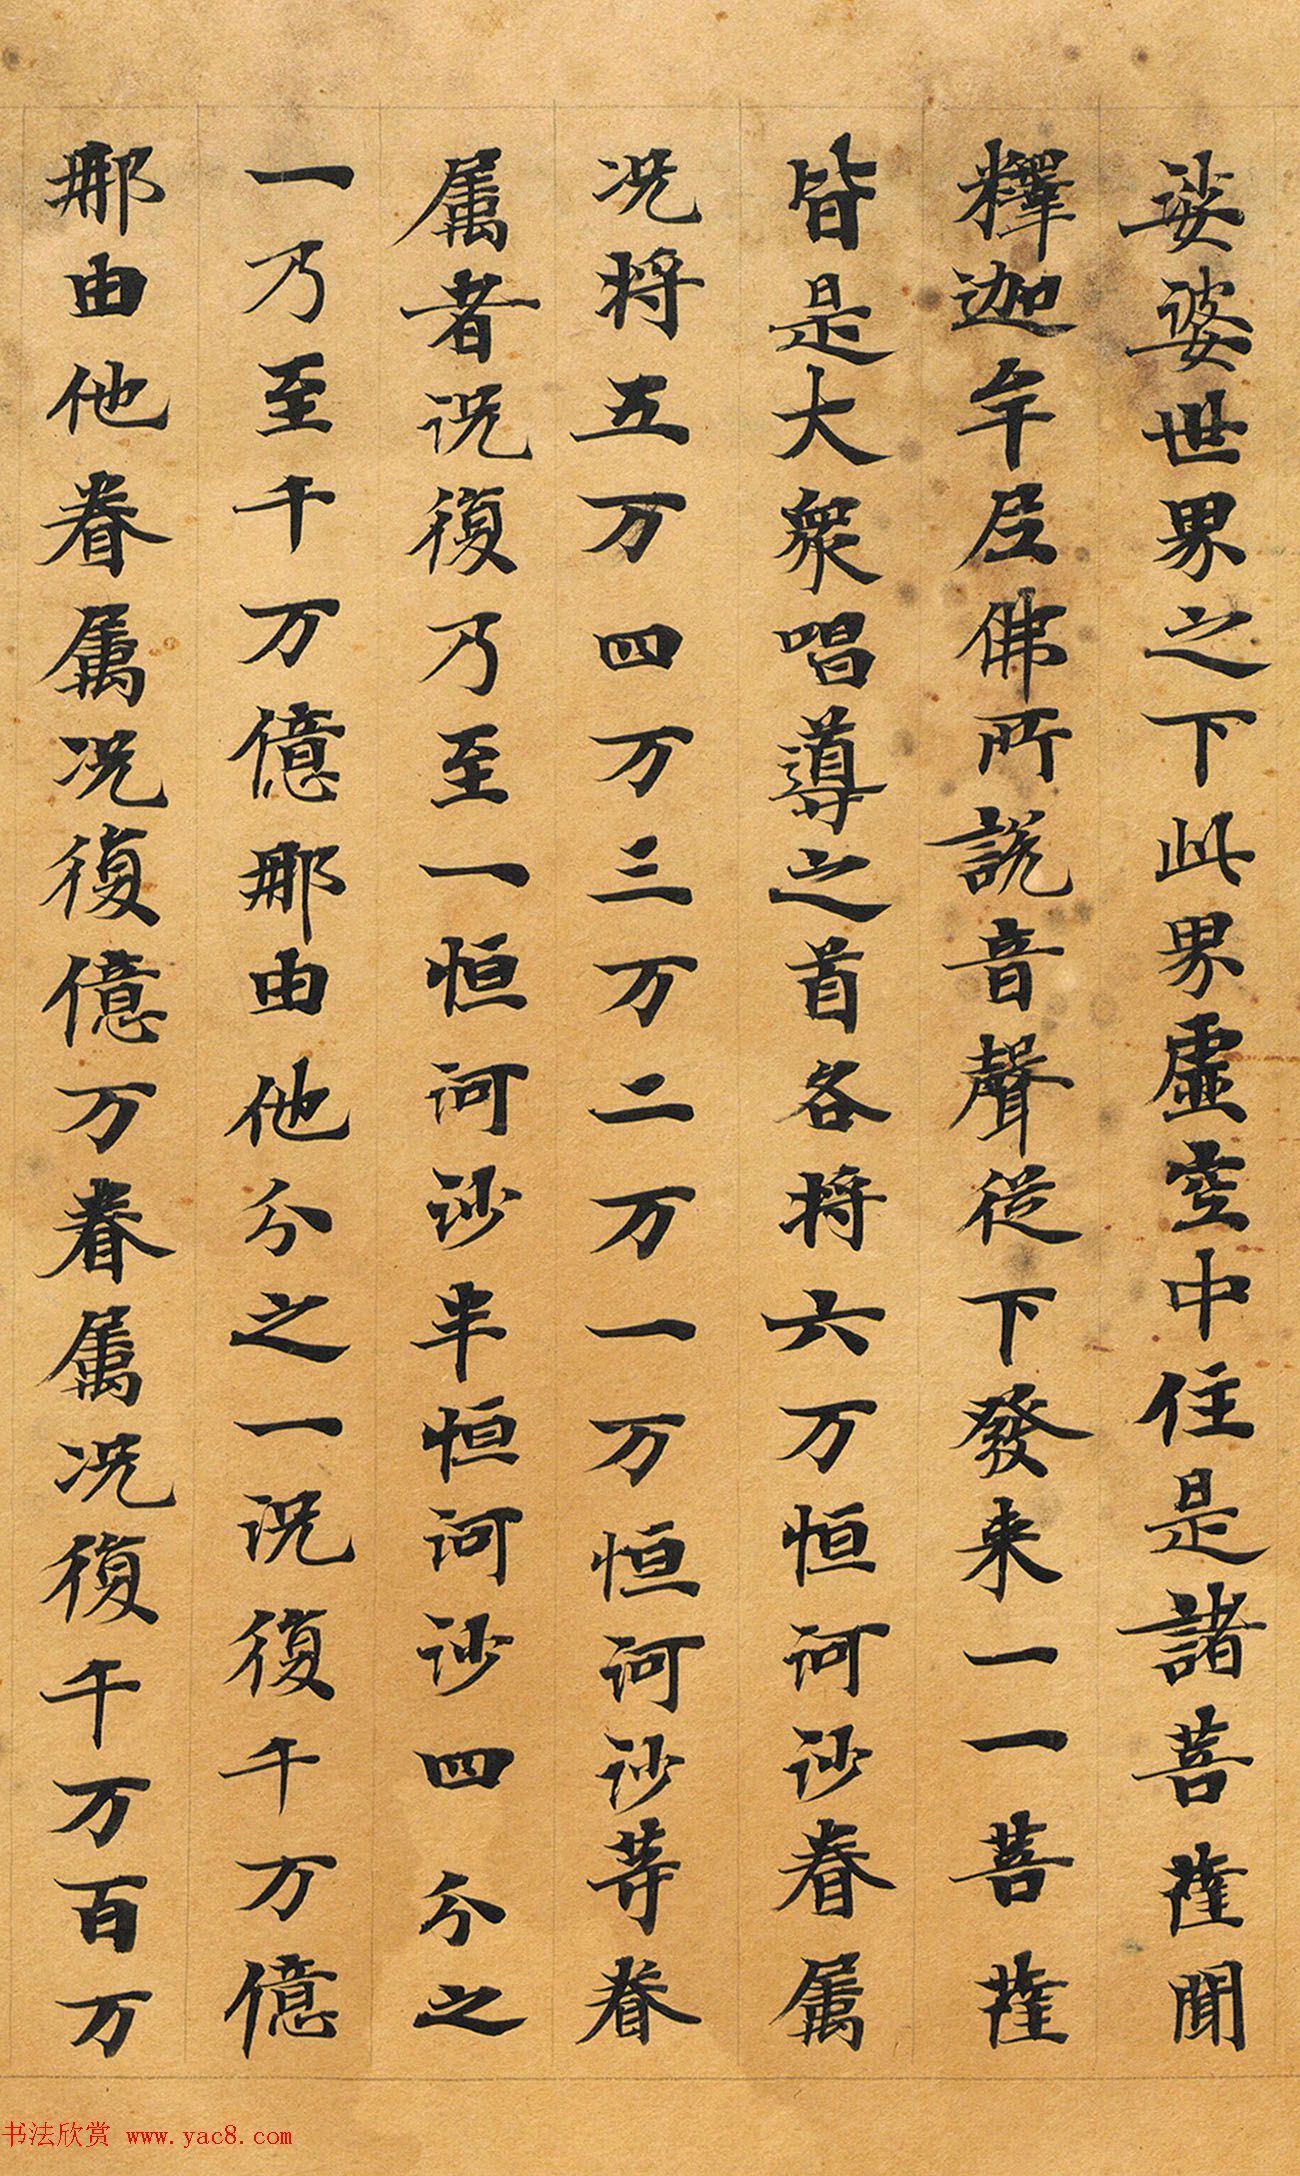 娑婆世界之下此界虛空中住是諸菩薩聞
釋迦牟尼佛所說音聲從下發来一一菩薩
皆是大眾唱導之首各將六万恒河沙眷屬
况將五万四万三万二万一万恒河沙等眷
属者况復乃至一恒河沙半恒河沙四分之
一乃至千万億那由他分之一况復千万億
那由他眷属况復億万眷属况復千万百万
书法欣赏 www.yac8.com